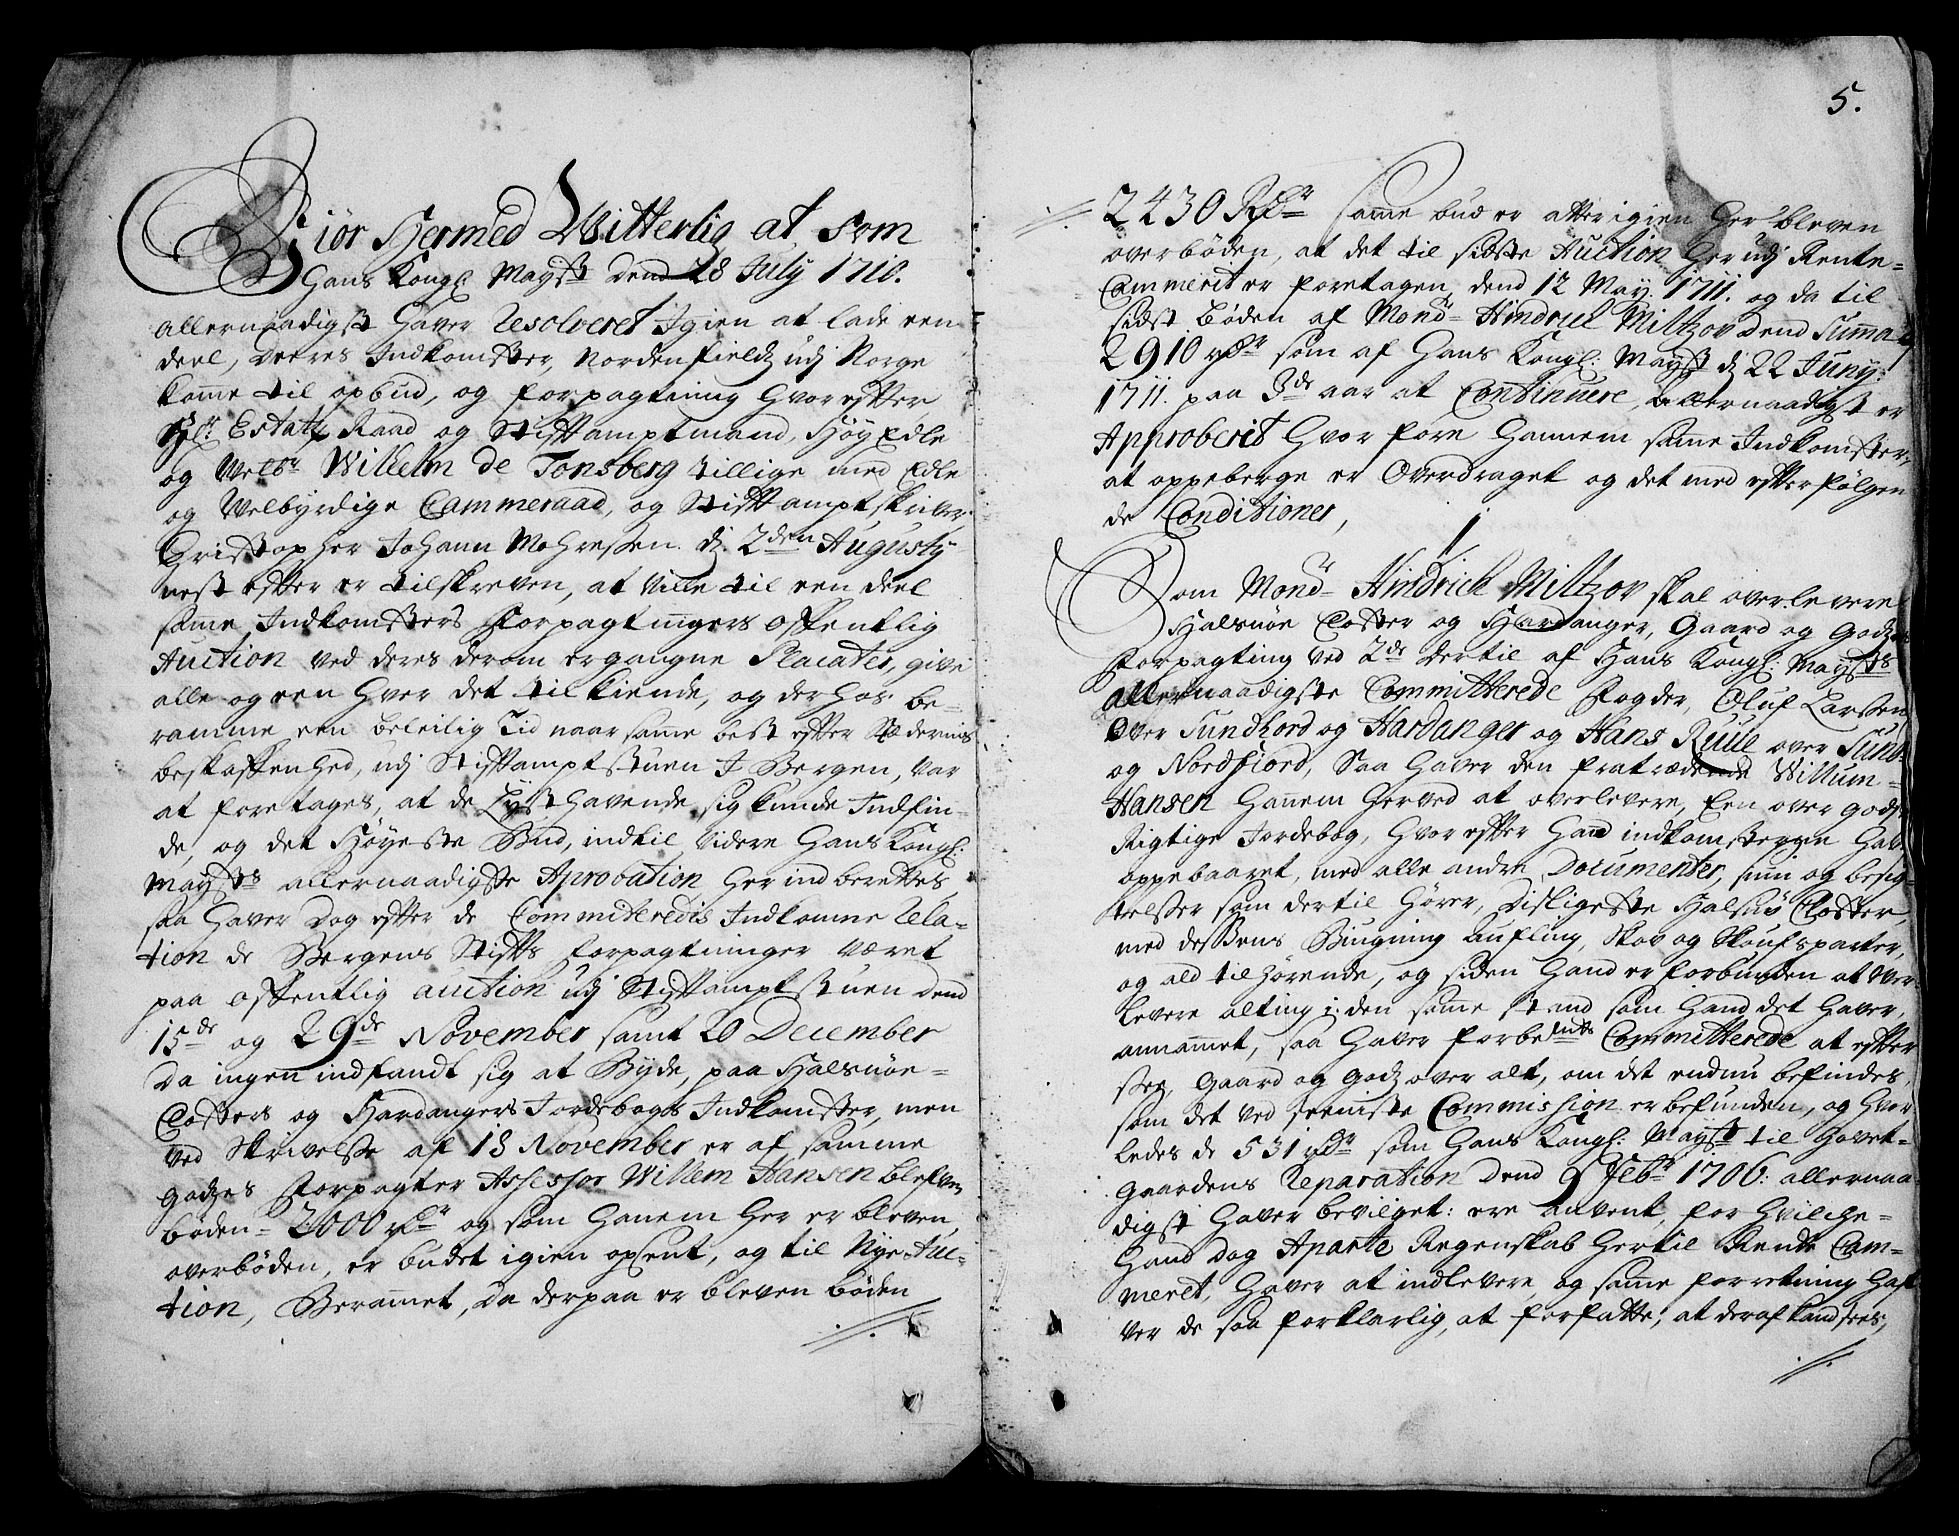 Giör Hermed Witterlig at, Som
Hans Kongl: Mayst dend 28 July 1710.
allernaadigst Haver Resolveret Igien at lade een
deel, Deres Indkomster, Nordenfieldz udj Norge
komme til opbud, og forpagtning Hvorefter
Hr: Estatz Raad og Stiftamptmand, HøyEdle
og Welbr Wilhelm de Tonsberg tillige med Edle
og Welbyrdige Cammeraad, og Stiftamptskriver
Christopher Johann Mohressen. dj. 2den Augusty
nest efter er tilskreven, at ville til een deel
same Indkomsters Forpagtningers offentlig
Auction ved deres derom ergangne Placater, give
alle og een Hver det tilkiende, og der Hos be-
ramme een beleilig Tid naar samme best efter Stædernis
beskaffenhed, udj Stiftamptstuen I Bergen, var
at foretages, at de Lyst Havende sig kunde Indfin-
de, og det Høyeste Bud, indtil videre Hans Kongl:
Maysts allernaadigste Aprobation Her indberettes,
saa Haver dog efter de Committeredis Indkomne Rela-
tion de Bergens Stifts forpagtninger været
paa offentlig auction udj Stiftamptstuen dend
15de og 29de November samt 20 December
Da ingen indfandt sig at Byde, paa Halsnøe-
Closters og Hardangers Jordebogs Indkomster, men
ved Skrivelsse af 18 November er af samme
Godzes Forpagter Assessor Willem Hansen blefven
böden- 2000 rdr og som Hanem Her er bleven
overböden, er budet igien opsent, og til Nye Auc-
tion, Beramet, da derpaa er bleven böden
5.
2430 Rdr same bud er atter igien Her bleven
overböden, at det til sidste Auction Her udj Rente-
Cammerit er foretagen dend 12 May. 1711. og da til
sidst böden af Monsr Hindrich Miltzov dend Summa
2910 rdr som af Hans Kongl: Mayst dj 22 Juny:
1711. paa 3de aar at Continuere, allernaadigst er
Approberit Hvor fore Hannem same Indkomster
at oppeberge er Overdraget og det med efterfølgen
de Conditioner,
1.
Som Monsr Hindrich Miltzov skal overlevere
Halsnöe Closter og Hardanger, Gaard og Godzes
Forpagting ved 2de dertil af Hans Kongl: Maysts
allernaadigste Committerede Fogder, Oluf Larssen
Over Sundhord og Hardanger og Hans Ruue over Sund-
og Nordfiord, Saa Haver den fratrædende Willum-
Hansen Hannem Herved at overlevere, Een over godz
Rigtige Jordebog, Hvor efter Hand indkomsterne Haver
oppebaaret, med alle andre Documenter, sijn og besig-
telsser som dertil Hörer, disligeste Halsnöe Closter,
med dessens Biugning aufling, Skov og Skoufsparter,
og ald til Hörende, og siden Hand er forbunden at over-
levere alting i den same stand som Hand det Haver
annammet, saa Haver forbemte Committerede at efter
see, Gaard og Godz over alt, om det endnu befindes,
som det ved seeniste Commission er befunden, og Hvor
ledes de 531 rdr som Hans Kongl: Mayst til Hovet-
gaardens Reparation dend 9 Febr 1706: allernaa
digst Haver bevilget: ere anvent, for Hvilche-
Hand dog Aparte Regenskab Hertil Rente Cam-
meret, Haver at indlevere, og same forretning Haf
ver de saa forklarlig, at forfatte; at deraf kand sees;